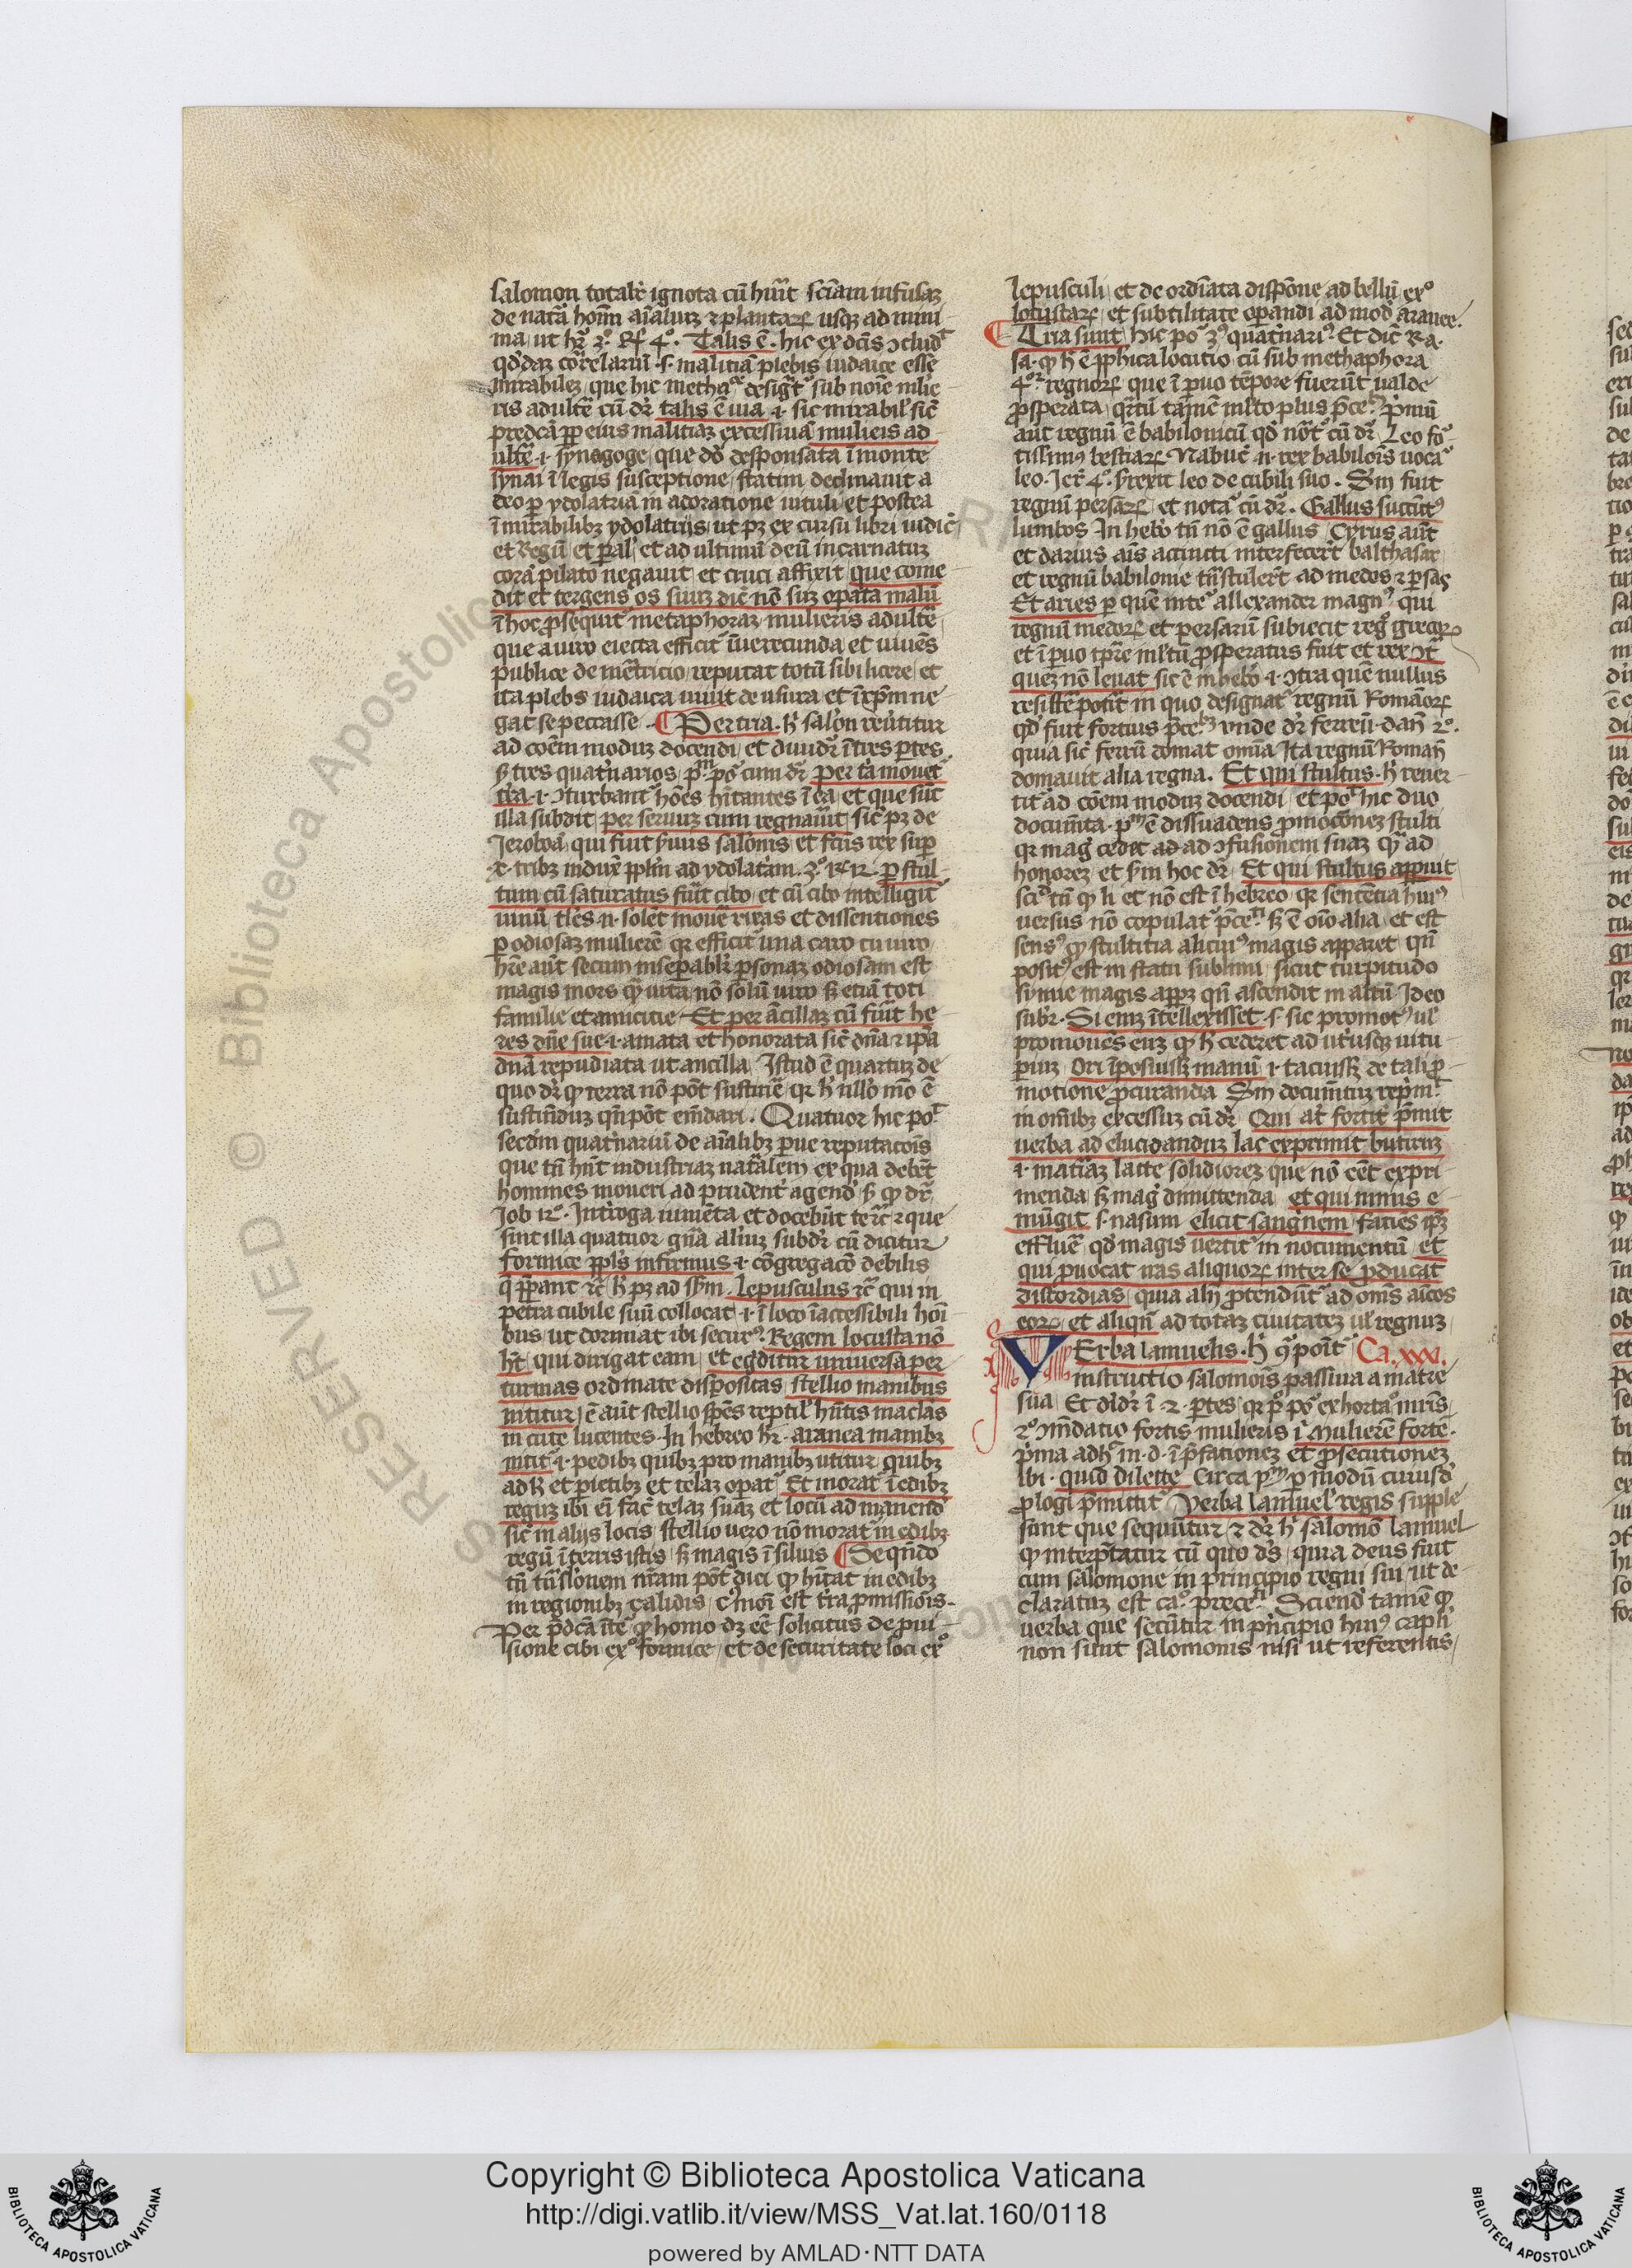 salomon totalr̃ ignota cũ hũit sciãm infusaz
de natã hoĩm aĩaliuz ⁊ plantarꝝ usqꝫ ad mini-
ma, ut hr̃ 3º. Rꝝ 4º. Talis ẽ. hic ex dcĩs ↄcludᵗ
qđdaz correlariũ .s. malitiã plebis iudaice esse
mirabilez, que hic methaᶜᵉ designatᵒ sub noĩe mlie-
ris adultẽ cũ dr̃ talis ẽ uia .i. sic mirabil' sic̃
predcã ꝓp eius malitiaz excessiuã mulieris ad-
ultẽ .i. synagoge, que dõ desponsata ĩ monte
synai ĩ legis susceptione, statim declinauit a
deo ꝑ ydolatriã in adoratione uituli, et postea
ĩ mirabilibꝫ ydolatrijs, ut pꝫ ex cursu libri iudic̃
et Regũ, et ꝑal', et ad ultimũ deũ incarnatuz
corã pilato negauit, et cruci affixit, que come-
dit et tergens os suuz dic̃ nõ suz oꝑata malũ
ĩ hoc ꝓsequit᷑ metaphoraz mulieris adultẽ
que a uiro eiecta efficit᷑ ĩuerecunda, et uiuẽs
publice de mẽtricio, reputat totũ sibi licere, et
ita plebs iudaica uiuit de usura, et ĩ xp̃m ne-
gat se peccasse. ¶ Per tria. h̃ salõn reũtitur
ad cõem moduz docendi, et diuidr̃ ĩ tres ꝑtes
s̃ tres quatr̃narios, pᵐ. põ cum dr̃ per tã mouet᷑
tr̃a .i. ↄturbant᷑ hoẽs hĩtantes ĩ ea, et que sũt
illa subdit, per seruuz cum regnauit, sic̃ pꝫ de
Jeroboã, qui fuit s̃uus salõnis, et fc̃us rex suꝑ
x. tribꝫ induxˢ ppl̃m ad ydolatriã. 3º. R 12. ꝑ stul-
tum cũ saturatus fũit cibo, et cũ cibo intelligit᷑
uinũ, tl̃es .n. solẽt mouẽ rixas et dissentiones
ꝑ odiosaz mulierẽ, qr̃ efficit᷑ una caro cũ uiro
hr̃e aũt secum insepabl'r ꝑsonaz odiosam est
magis mors q̃ uita, nõ solũ uiro sꝫ etiã toti
familie et amicicie. Et per ãcillaz cũ fũit he-
res dñe sue .i. amata et honorata sic̃ dñã ⁊ ip̃a
dñã repudiata ut ancilla. Istud ẽ quartuz de
quo dr̃ qꝫ terra nõ põt sustinẽ, qr̃ h̃ nullo mõ ẽ
sustinẽduz qñ põt emẽdari. Quatuor hic poᵗ
secũdm quatr̃nariũ de aĩalibꝫ ꝑue reputacõis
que tñ hñt industriaz naturalem, ex qua debẽt
homines moueri ad prudenter agendũ, s̃ qꝫ dr̃
Job 12º. Interroga iumẽta, et docebũt te ⁊c̃ ⁊ que
sint illa quatuor gñã aĩaliuz subdr̃ cũ dicitur
formice ppl's infirmus .i. cõgregacõ debilis
q̃ p̃parat ⁊c̃ h̃ pꝫ ad sẽsũm. lepusculus ⁊c̃ qui in
petra cubile suũ collocat .i. ĩ loco ĩaccessibili hoĩ-
bus, ut dormiat ibi securᵒ. Regem locusta nõ
h̃t, qui dirigat eam, et egditur uniuersa per
turmas ordinate dispositas, stellio manibus
nititur, ẽ aũt stellio spẽs reptil' hñtis maclas
in cute lucentes. In hebreo h̃r. aranea manibꝫ
nitit᷑ .i. pedibꝫ quibꝫ pro manibꝫ utitur, quibꝫ
adh̃ et pictibꝫ et telaz oꝑat᷑. Et morat᷑ ĩ edibꝫ
reguz ibi eĩ fac̃ telaz suaz et locũ ad manendũ
sic̃ in alijs locis, stellio uero nõ morat᷑ in edibꝫ
regũ ĩ terris istis, sꝫ magis ĩ siluis ¶ Seqñdo
tñ trãslõnem nr̃am põt dici qꝫ hĩtat in edibꝫ
in regionibꝫ calidis, cᵒmoĩ est tr̃a ꝓmissiõis.
Per p̃dcã ĩte᷑ qꝫ homo dꝫ eẽ solicitus de ꝓui-
sione cibi exº formice, et de securitate loci exº
lepusculi, et de ordĩata dispõne ad bellũ exº
locustarꝝ, et subtilitate operandi ad modũ aranee.
¶ Tria sunt, hic põ 3ᵐ quatr̃nariũ. Et dic̃ Ra.
sa. qꝫ h̃ ẽ ꝓphica locutio cũ sub methaphora
4ᵒʳ regnorꝝ, que ĩ ꝑuo tẽpore fuerũt ualde
ꝓsperata, qr̃tũ tamẽ ml'to plus p̃ceᵗ. p̃mũ
aũt regnũ ẽ babilonicũ qđ not᷑ cũ dr̃, Leo for-
tissimᵒ bestiarꝝ Nabuc̃ .n. rex babilois uocat᷑
leo. Jer̃ 4º. surrexit leo de cubili suo. Sm̃ fuit
regnũ persarꝝ, et notat᷑ cũ dr̃. Gallus succñtᵒ
lumbos. In hebr̃ tñ nõ ẽ gallus, Cyrus aũt
et darius aĩs accincti interfecert balthasar
et regnũ babilonie trãstulert ad medos ⁊ ꝑsas
Et aries, ꝑ quẽ intᵉ᷑ allexander magnᵒ, qui
regnũ medorꝝ et persarũ subiecit regᵒ grecorꝝ
et ĩ ꝑuo tp̃re ml'tũ ꝓsperatus fuit et rex ↄᵗ
quez nõ leuat, sic ẽ in hebr̃ .i. ↄtra quẽ nullus
resistẽ potit᷑ in quo designat᷑ regnũ Romãorꝝ
qđ fuit fortius p̃ceᵇꝫ, unde dr̃ ferreũ. dañ 2º.
quia sic̃ ferrũ domat oĩa, Ita regnũ Romañ
domauit alia regna. Et qui stultus. h̃ reuer-
tit᷑ ad cõem moduz docendi, et poᵗ hic duo
documẽta. pᵐ ẽ dissuadens ꝓmocõnez stulti
qr̃ magᵒ cedit ad ad ↄfusionem suaz q̃ ad
honorez et s̃m hoc dr̃. Et qui stultus apꝑuit
sciᵈ tñ qꝫ h̃ et nõ est ĩ hebreo, qr̃ sentẽtia huiᵒ
uersus nõ copulat᷑ p̃ceᵗⁱ, sꝫ ẽ oĩo alia, et est
sensᵒ, qꝫ stultitia alicuiᵒ magis apparet, qñ
positᵒ est in statu sublimi, sicut turpitudo
symie magis appꝫ, qñ ascendit in altũ. Ideo
subr̃. Si eniz ĩtellexisset .s. sic promotᵒ, uel
promouẽs euz, qꝫ h̃ cederet ad utriusqꝫ uitu-
ꝑiuz, Ori ĩposuissꝫ manũ .i. tacuisꝫ de tali ꝓ-
motione ꝓcuranda. Sm̃ documẽtuz reprim᷑
in omĩbꝫ excessuz cũ dr̃. Qui aũt fortit̃ p̃mit
ubera ad eliciendũ lac exprimit butiruz
.i. matiãz lacte solidiorez, que nõ eẽt expri-
menda, sꝫ magᵒ dimittenda, et qui nimis e-
mũgit .s. nasum, elicit sangnem, facies ip̃z
effluẽ qđ magis uertit᷑ in nocumentũ, et
qui ꝓuocat iras aliquorꝝ inter se ꝓducat
discordias, quia alĩ ꝓtendũt᷑ ad oms̃ amĩcos
eorꝝ, et aliqñ ad totaz ciuitatez ul' regnuz
VErba lamuelis. h̃ 9poĩt᷑ Ca. xxxi.
instructio salomõis passiua a matre
sua. Et diuidr̃ ĩ .2. ꝑtes, qr̃ pᵒ põ exhortaᵒ mr̃is
2º ↄmẽdatio fortis mulieris ĩ. Mulierẽ fortẽ.
p̃ma adhᶜ in .d. ĩ p̃fationez et ꝓsecutionez
Ibi. quid dilecte. Circa pᵐ ꝑ modũ cuiusđ
ꝓlogi p̃mittit᷑. Verba lamuel' regis, supple
sunt que sequũtur, ⁊ dr̃ h̃ salomõ lamuel
qꝫ interp̃tatur cũ quo ds̃, quia deus fuit
cum salomone in principio regni sui, ut de-
claratuz est caᵒ. preceᵗⁱ. Sciend tamẽ qꝫ
uerba que secũtur in p̃ncipio huiᵒ caplⁱ
non sunt salomonis nisi ut referentis,
Copyright © Biblioteca Apostolica Vaticana
http://digi.vatlib.it/view/MSS_Vat.lat.160/0118
powered by AMLAD·NTT DATA
BIBLIOTECA APOSTOLICA VATICANA
BIBLIOTECA APOSTOLICA VATICANA